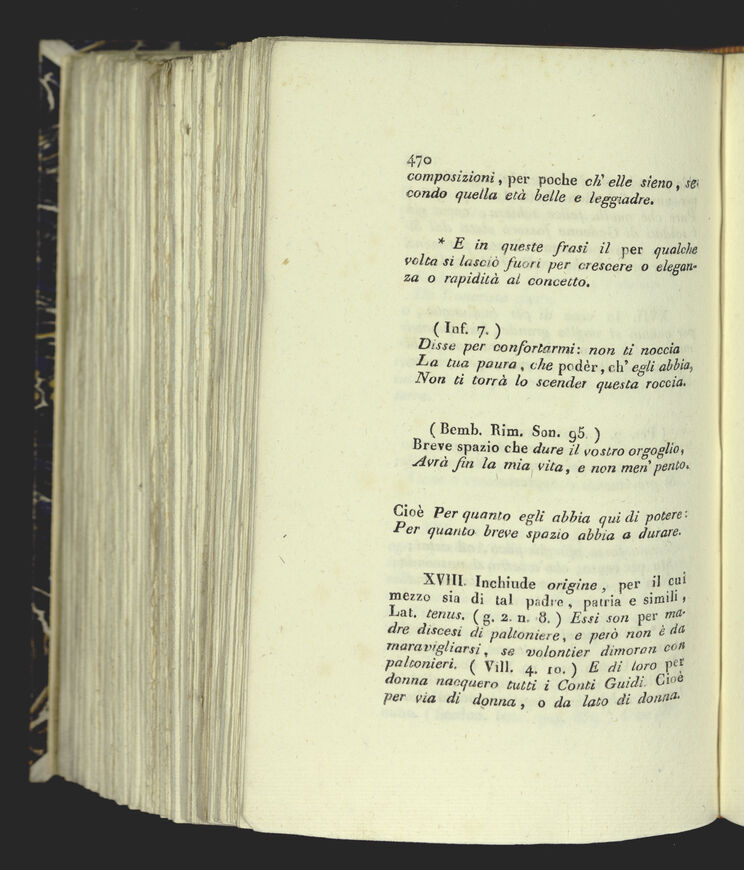 470
composizioni, per poche ch' elle sieno, se-
condo quella età belle e leggiadre.
* E in queste frasi il per qualche
volta si lasciò fuori per crescere o elegan-
za o rapidità al concetto.
( Inf. 7. )
Disse per confortarmi: non ti noccia
La tua paura, che podèr, ch' egli abbia,
Non ti torrà lo scender questa roccia.
( Bemb. Rim. Son. 95. )
Breve spazio che dure il vostro orgoglio,
Avrà fin la mia vita, e non men' pento.
Cioè Per quanto egli abbia qui di potere:
Per quanto breve spazio abbia a durare.
XVIII. Inchiude origine, per il cui
mezzo sia di tal padre, patria e simili,
Lat. tenus. ( g. 2. n. 8. ) Essi son per ma-
dre discesi di paltoniere, e però non è da
maravigliarsi, se volontier dimoran con
paltonieri. ( Vill. 4. 10. ) E di loro per
donna nacquero tutti i Conti Guidi. Cioè
per via di donna, o da lato di donna.